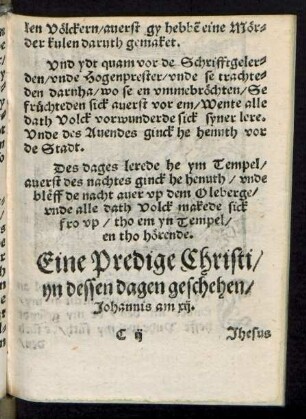 len Völckern/ auerst gy hebbē eine Mör-
der kulen daruth gemaket.
Vnd ydt quam vor de Schrifftgeler-
den/ vnde Hogenprester/ vnde se trachte-
den darnha/ wo se en vmmebröchten/ Se
früchteden sick auerst vor em/ Wente alle
dath Volck vorwunderde sick syner lere.
Vnde des Auendes ginck he henuth vor
de Stadt.
Des dages lerede he ym Tempel/
auerst des nachtes ginck he henuth/ vnde
bleff de nacht auer vp dem Oleberge/
vnde alle dath Volck makede sick
fro vp/ tho em yn Tempel/
en tho hörende.
Eine Predige Christi/
yn dessen dagen geschehen/
Johannis am xij.
C ij
Jhesus